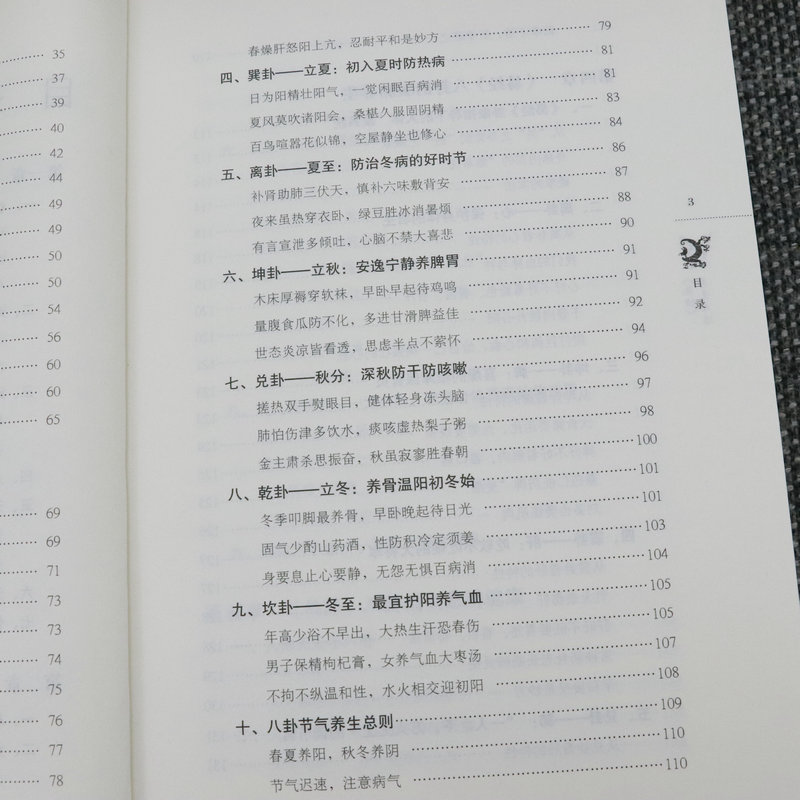 35
37
39
40
42
44
49
49
50
50
54
56
60
60
65
69
69
71
73
73
74
75
76
77
78
春燥肝怒阳上亢，忍耐平和是妙方 79
四、巽卦——立夏：初入夏时防热病 81
日为阳精壮阳气，一觉闲眠百病消 81
夏风莫吹诸阳会，桑椹久服固阴精 83
百鸟喧嚣花似锦，空屋静坐也修心 84
五、离卦——夏至：防治冬病的好时节 86
补肾助肺三伏天，慎补六味敷背安 87
夜来虽热穿衣卧，绿豆胜冰消暑烦 88
有言宣泄多倾吐，心脑不禁大喜悲 90
六、坤卦——立秋：安逸宁静养脾胃 91
木床厚褥穿软袜，早卧早起待鸡鸣 91
量腹食瓜防不化，多进甘滑脾益佳 92
世态炎凉皆看透，思虑半点不萦怀 94
七、兑卦——秋分：深秋防干防咳嗽 96
搓热双手熨眼目，健体轻身冻头脑 97
肺怕伤津多饮水，痰咳虚热梨子粥 98
金主肃杀思振奋，秋虽寂寥胜春朝 100
八、乾卦——立冬：养骨温阳初冬始 101
冬季叩脚最养骨，早卧晚起待日光 101
固气少酌山药酒，性防积冷定须姜 103
身要息止心要静，无怨无惧百病消 104
九、坎卦——冬至：最宜护阳养气血 105
年高少浴不早出，大热生汗恐春伤 105
男子保精枸杞膏，女养气血大枣汤 107
不拘不纵温和性，水火相交迎初阳 108
十、八卦节气养生总则 109
春夏养阳，秋冬养阴 110
节气迟速，注意病气 110
3
目录